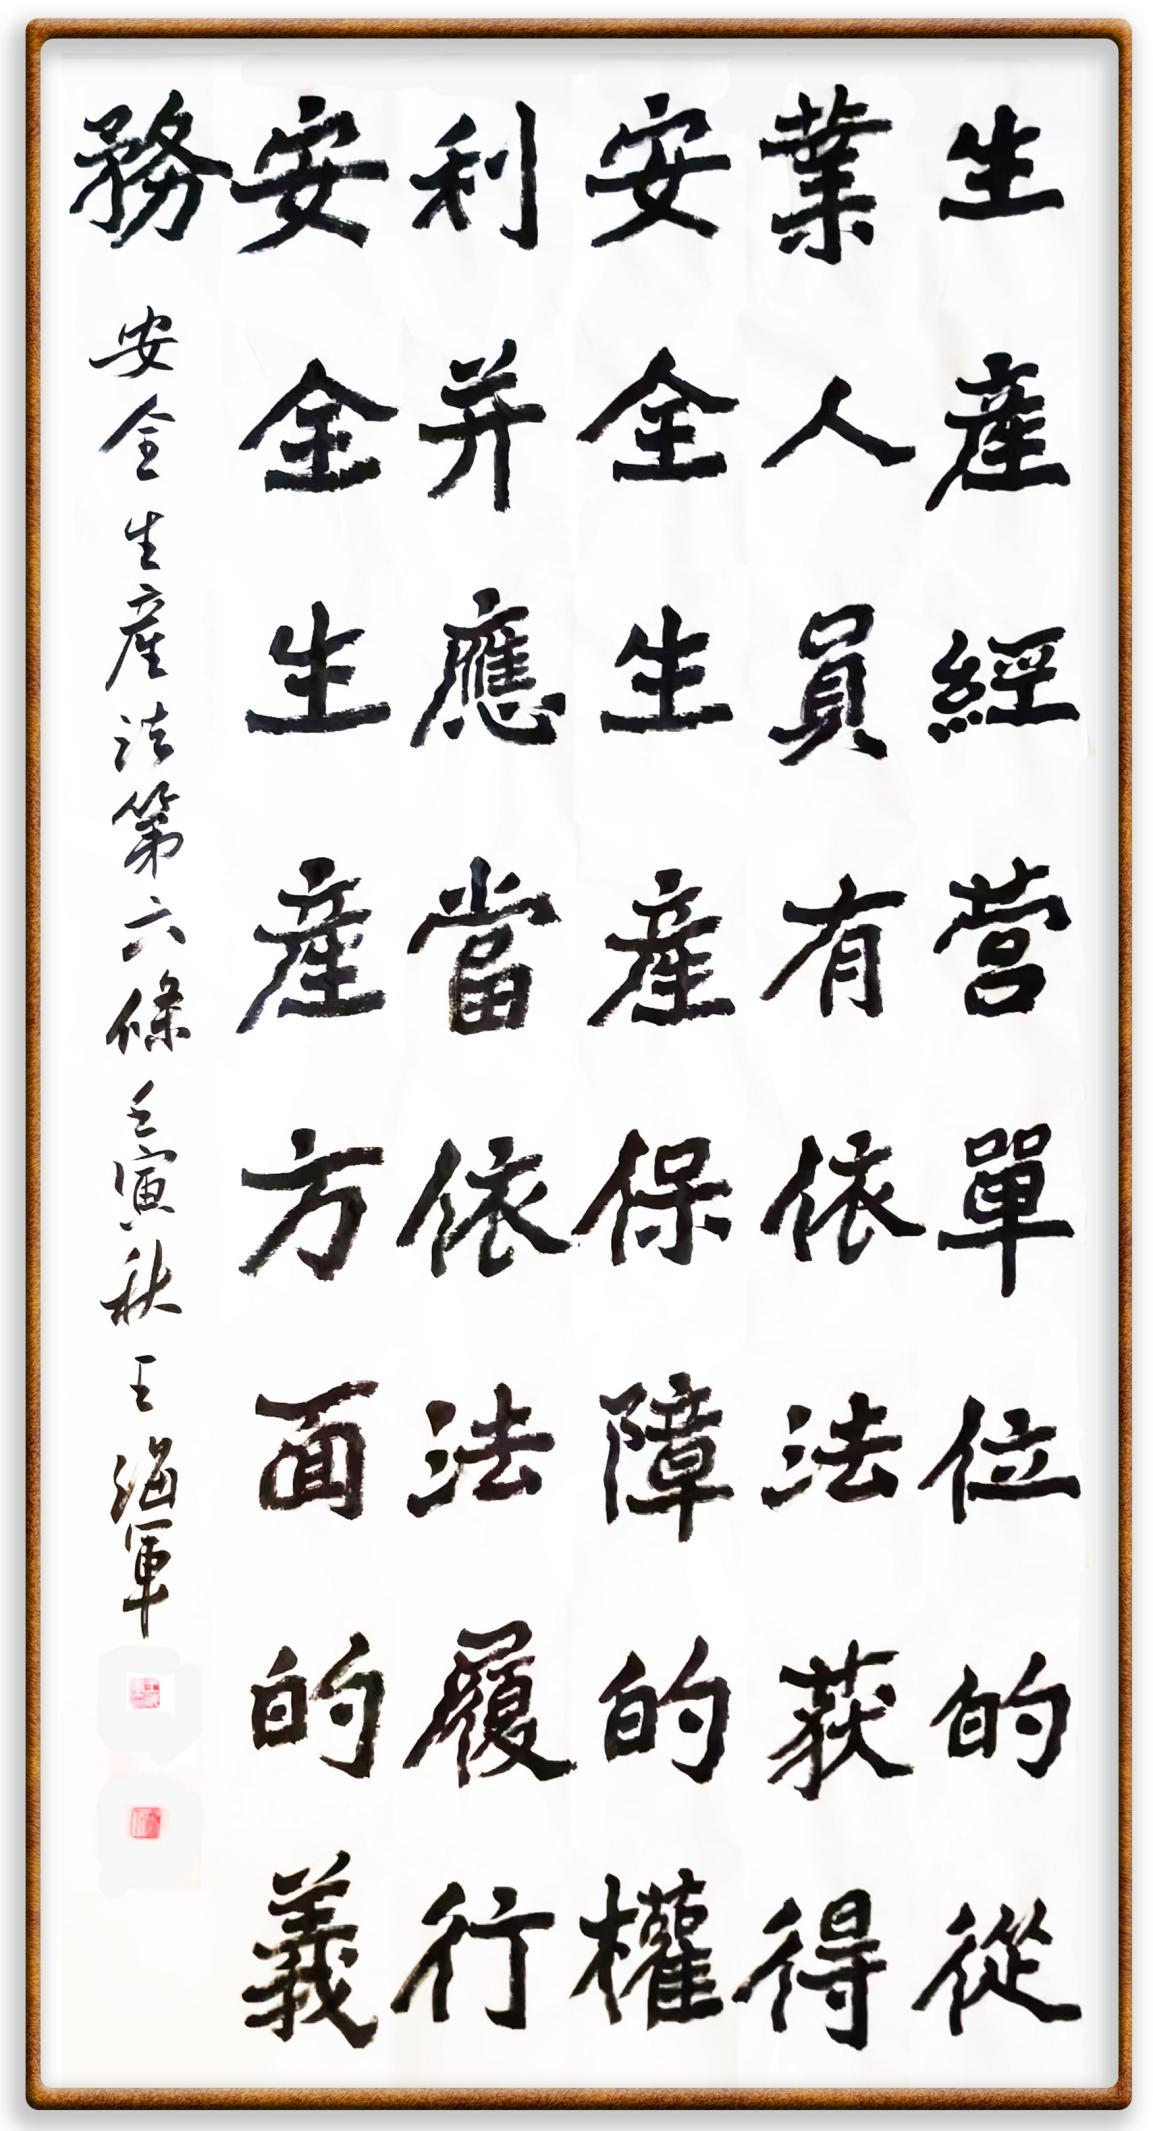 生產經营單位的從
業人員有依法获得
安全生產保障的權
利并應當依法履行
安全生產方面的義
務
安全生產法第六條壬寅秋王海軍